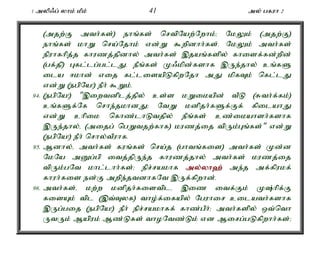 1 அலிஃப் லாம் மீம் 41 அல் பகரா 2
(அதற்கு அவர்கள்) நாங்கள் செவியேற்றோம்; மேலும் (அதற்கு)
நாங்கள் மாறு செய்தோம் என்று கூறினார்கள். மேலும் அவர்கள்
நிராகரித்த காரணத்தினால் அவர்கள் இதயங்களில் காளைக்கன்றின்
(பக்தி) புகட்டப்பட்டது. நீங்கள் முஃமின்களாக இருந்தால் உங்களு
டைய ஈமான் எதை கட்டளையிடுகிறதோ அது மிகவும் கெட்டது
என்று (நபியே!) நீர் கூறும்.
94. (நபியே!) "இறைவனிடத்தில் உள்ள மறுமையின் வீடு (சுவர்க்கம்)
உங்களுக்கே சொந்தமானது; வேறு மனிதர்களுக்குக் கிடையாது
என்று உரிமை கொண்டாடுவதில் நீங்கள் உண்மையாளர்களாக
இருந்தால், (அதைப் பெறுவதற்காக) மரணத்தை விரும்புங்கள்" என்று
(நபியே!) நீர் சொல்வீராக.
95. ஆனால், அவர்கள் கரங்கள் செய்த (பாவங்களை) அவர்கள் முன்ன
மேயே அனுப்பி வைத்திருந்த காரணத்தால் அவர்கள் மரணத்தை
விரும்பவே மாட்டார்கள்; நிச்சயமாக அல்லாஹ் அந்த அக்கிரமக்
காரர்களை நன்கு அறிந்தவனாகவே இருக்கிறான்.
96. அவர்கள், மற்ற மனிதர்களைவிட இணை வைக்கும் முஷ்ரிக்கு
களையும் விட (இவ்வுலக) வாழ்க்கையில் பேராசை உடையவர்களாக
இருப்பதை (நபியே!) நீர் நிச்சயமாகக் காண்பீர்; அவர்களில் ஒவ்வொ
ருவரும் ஆயிரம் ஆண்டுகள் வாழவேண்டும் என ஆசைப்படுகிறார்கள்;